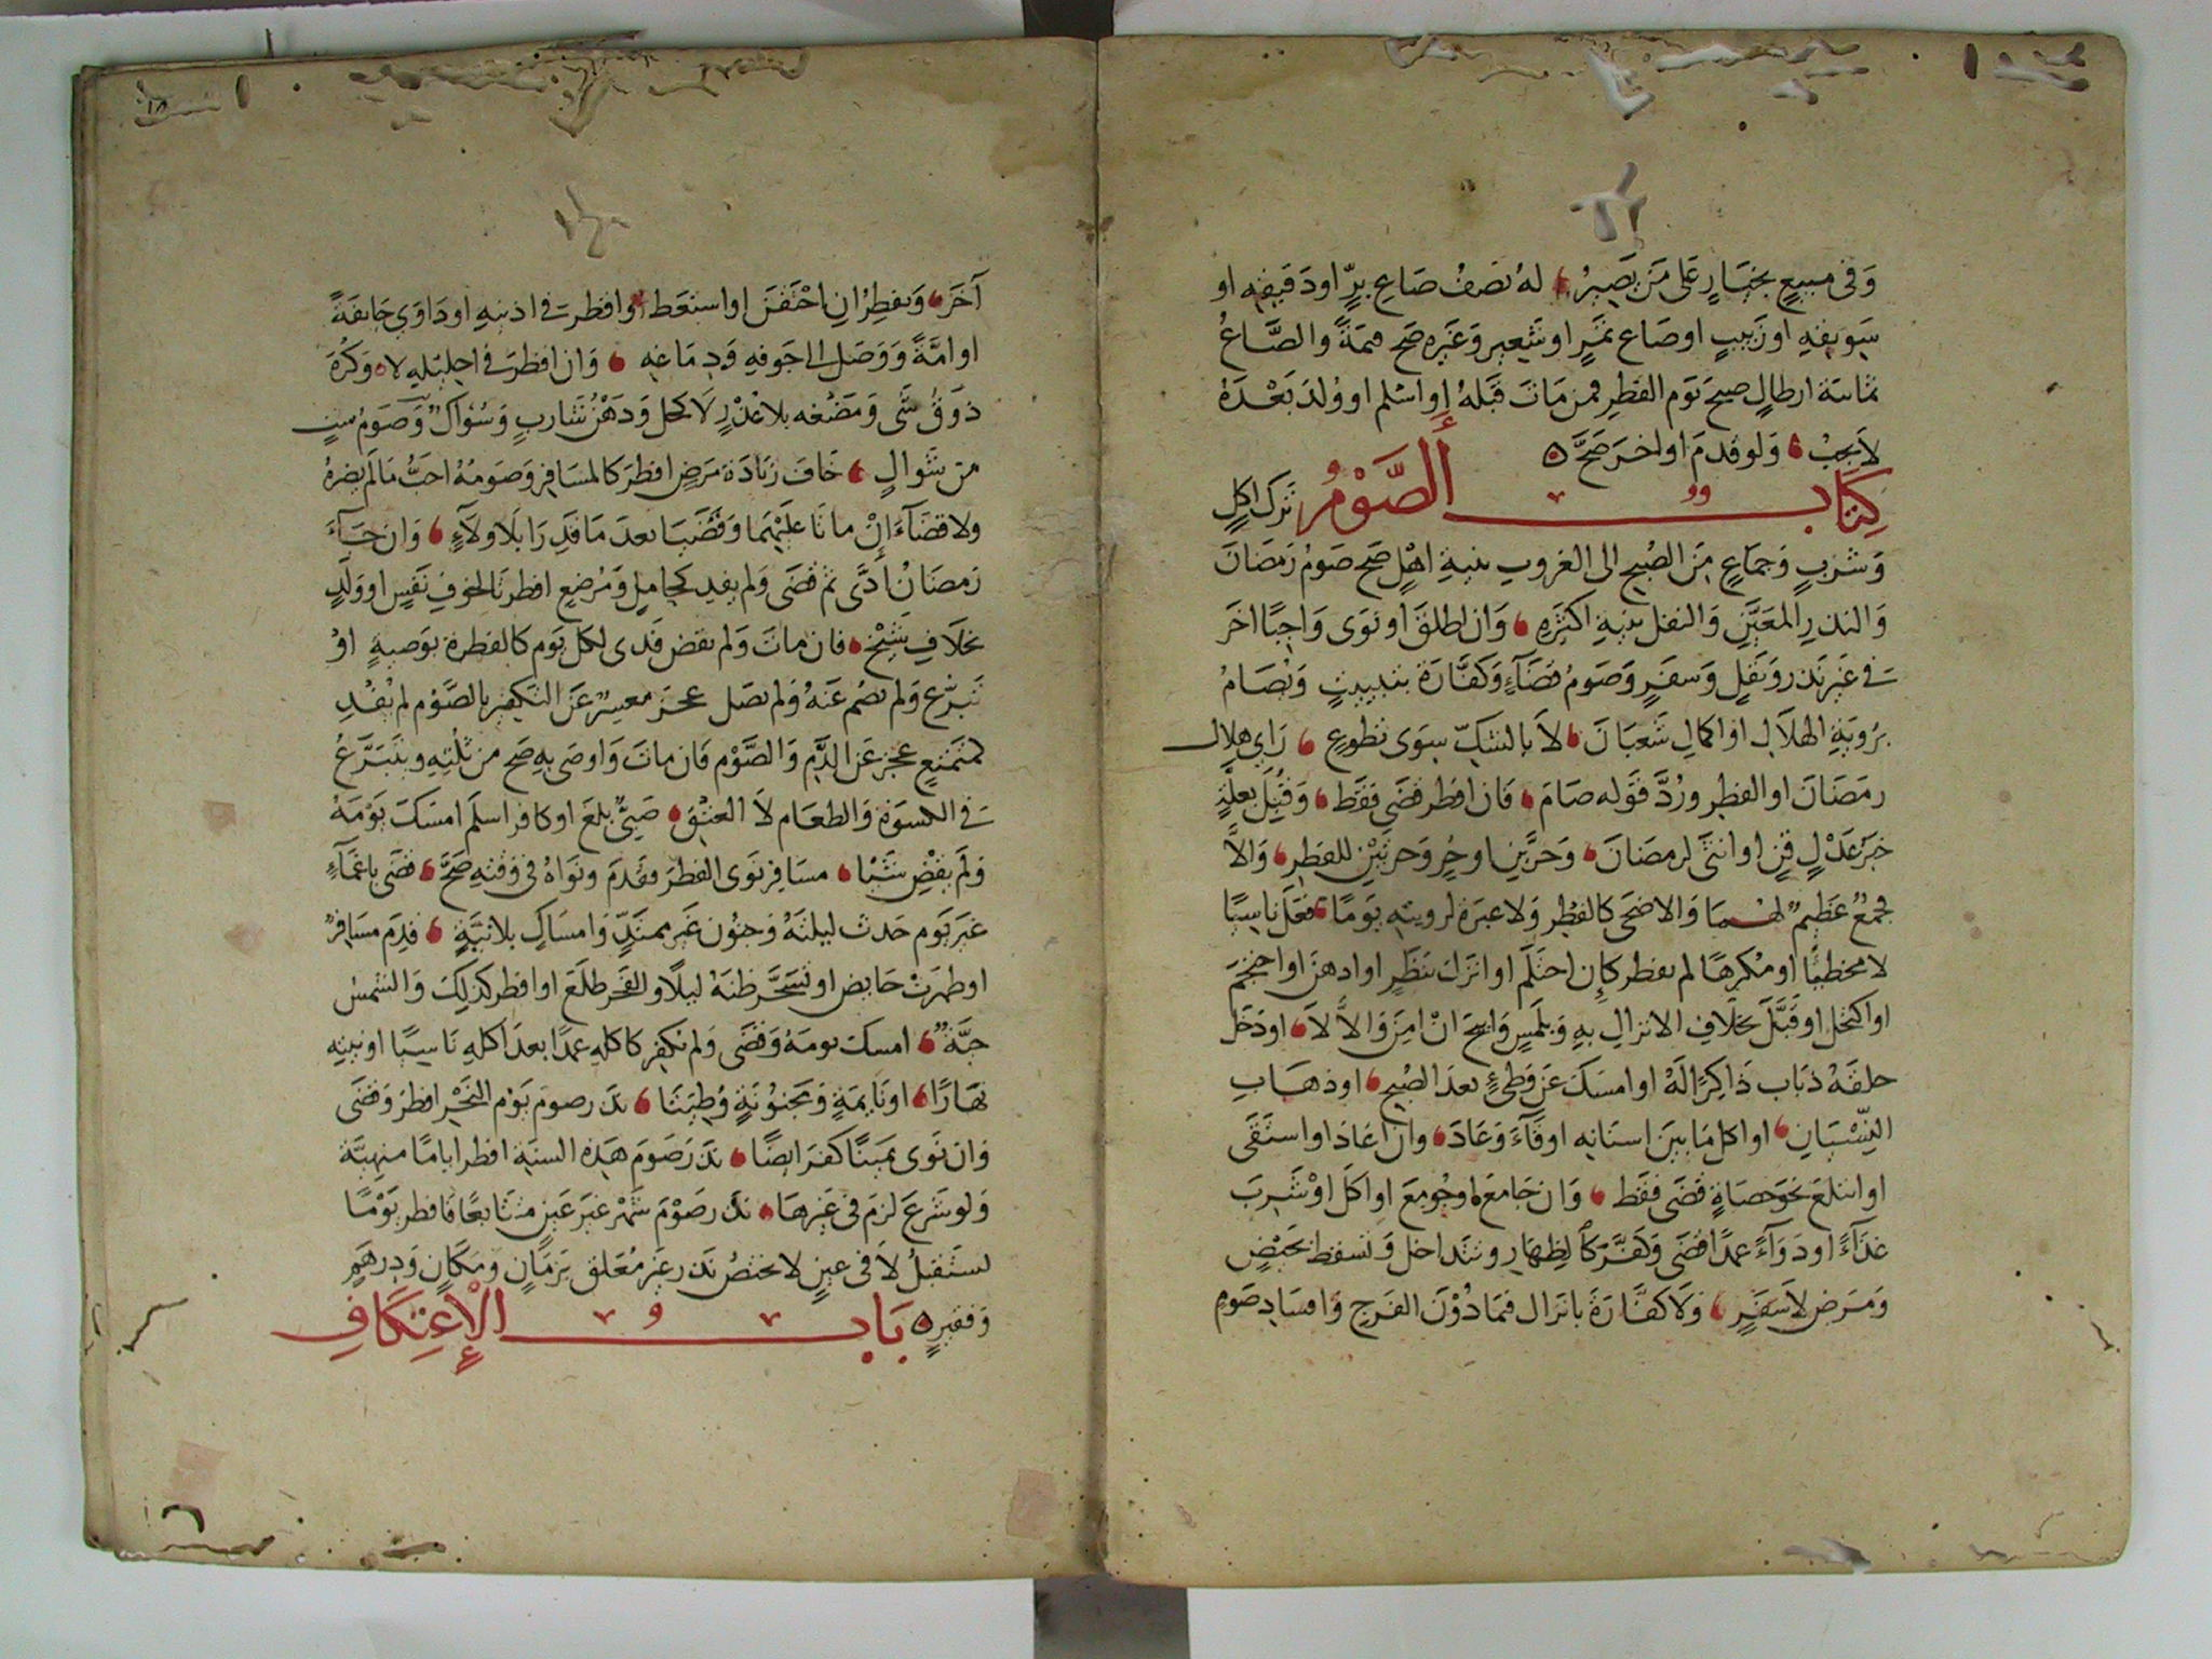 وَفى مبيعٍ بخيَارٍ عَلى مَن يَصِيرُ لهُ نصفُ صَاعِ برٍّ او دَقيقِه او
سَويقِهِ او زَبيبٍ او صَاع تمَرٍ او شَعِيرٍ وَغَيره صَح قيمَةً والصَّاعُ
ثمانية ارطالٍ صبحَ يَوم الفطرِ فمن مَاتَ قَبلهُ او اسْلم او وُلدَ بَعْدَهُ
لاَ يجبْ وَلو قدمَ او اخرَ صَحَّ
كِتَاب الصَّوْمُ ترك اكلٍ
وَشربٍ وَجماعٍ مِنَ الصُبح الى الغروب بنيةِ اهْلٍ صَح صَومُ رَمَضَانَ
وَالنذرِ المعَيَّنِ وَالنفل بنيةِ اكثرِهِ وَان اطلقَ او نَوَى وَاجبًا اخرَ
فى غَير نَذر وَنَفلٍ وَسفَرٍ وَصَومُ قضَآءٍ وَكفَّارَة بتبييتٍ وَيُصَامُ
برُويَةِ الهلاَلِ او اكمالِ شَعبَانَ لاَ بالشكِّ سِوَى تطوعٍ رَاى هِلال
رمَضَانَ او الفطرِ ورُدَّ قَوله صَامَ فَان افطر قضَى فقَط وَقُبِلَ بعلةٍ
خبَرُ عَدْلٍ قنٍ او انثَى لرمضانَ وَحرَّينِ او حُرٍ وَحرتَيْنِ للفطرِ وَالاَّ
فجمعٌ عَظيمٌ لهُمَا وَالاضحَى كالفطر وَلا عبرَة لرويتِهِ يَومًا فعَل نَاسِيًا
لا مخطئًا او مُكرهًا لم يفطر كاِن احتَلم او انزَلَ بنَظَرٍ او ادهنَ او احتجم
او اكتحل او قَبَّل بخلافِ الانزالِ بهِ وَبِلَمسٍ وَابيحَ انْ امِنَ وَالاَّ لاَ او دَخَل
حلقَهُ ذبَاب ذَاكِرًا لَهُ او امسَكَ عَن وَطئٍ بعدَ الصُبح او ذهَابِ
النِسْيَانِ او اكل مَا بينَ اسنَانِه او قَآءَ وَعَادَ وان اعَادَ او استَقَى
او ابتلعَ نحوَ حصَاةٍ قضَى فقَط وَان جَامَعَ او جُومِعَ او اكَل اوْ شرِبَ
غذَآءً او دَوَآءً عمدًا قضَى وَكفَّرَ كَالظهَارِ وتتداخل وَتَسقط بحَيْضٍ
وَمرَض لا سَفَرٍ وَلاَ كفَّارَةَ بانزال فيمَا دُوْنَ الفرجِ وَافسَادِ صَومٍ
آخَرَ وَيفطِرُ ان احْتقَنَ او استعَط او اقطرَ فى اذنيهِ او دَاوَى جَايفَةً
او امَّةً وَوَصَل الى جَوفِهِ وَدِمَاغِه وَان اقطرَ فى احليلِهِ لا وَكُرِهَ
ذوقُ شَى وَمَضْغه بلا عُذرٍ لاَ كحل وَدَهْنُ شَاربٍ وَسُوَاكٌ وَصَومُ ستٍ
من شوالٍ خَافَ زيَادَةَ مَرَضٍ افطرَ كالمسَافِر وَصَومُهُ احَبُّ مَالَم يضرهُ
ولا قضَآءَ إنْ ماتَا عَليْهمَا وَقَضَيَا بعدَ مَا قَدِرَا بلَا ولاَءٍ وَان جَآءَ
رَمضَانُ ادَّى ثم قضَى وَلم يفدِ كحَامِلٍ وَمُرضعٍ افطرتَا لخوفِ نَفسٍ او وَلَدٍ
بخلاَفِ شَيْخٍ فان ماتَ وَلم يقض فَدى لكل يَومٍ كالفطرة بوَصيةٍ اوْ
تَبرُّعٍ وَلم يصُم عَنهُ وَلم يصَل عجزَ معسِرٌ عَن التكفير بالصَّوم لم يُفْدِ
كمتمتعٍ عجز عَن الدَّمِ وَالصَّوْم فَان ماتَ وَاوصَى بهِ صَح من ثلثِهِ ويتبَرَّعُ
فى الكسوَة وَالطعَام لاَ العتْق صَبِىٌّ بلغَ او كافر اسلَم امسَكَ يَوْمَهُ
وَلَم يقْضِ شيْئًا مسَافر نوَى الفطرَ فقدِمَ ونوَاهُ فى وَقتهِ صَحَّ قضَى باغمَآءٍ
غيرَ يَوم حَدث ليلتَهُ وَجنُون غَير ممتدٍّ وَامسَاكٍ بلا نيَّةٍ قدِمَ مسَافِرٌ
او طهرَتْ حَايض او تَسَحَّرَ ظنهُ ليلًا والفَجر طلَعَ او افطر كذلِكَ وَالشمسُ
حيَّةٌ امسكَ يومَهُ وَقضَى وَلم يكفر كاكلِهِ عمدًا بعدَ اكلهِ نَاسِيًا او بنيهِ
نهَارًا او نَايمَةٍ وَمجنوُنَةٍ وُطِئَتَا نذر صومَ يَوْم النَّحْرِ افطرَ وَقضَى
وَان نَوَى يَميْنًا كفرَ ايضًا نذَرَ صَومَ هَذِه السنةِ افطر ايامًا منهيَّة
وَلو شَرعَ لزمَ فى غَيرهَا نذر صَوْمَ شَهْر غَيرَ عَينٍ متتَابعًا فافطر يَوْمًا
يستَقبلُ لاَ فى عينٍ لا يختصُ نَذر غَيرُ مُعَلق بزمَانٍ ومَكَانٍ وَدِرهَمٍ
وَفقيرٍ بَابُ الْإِعِتِكَافِ